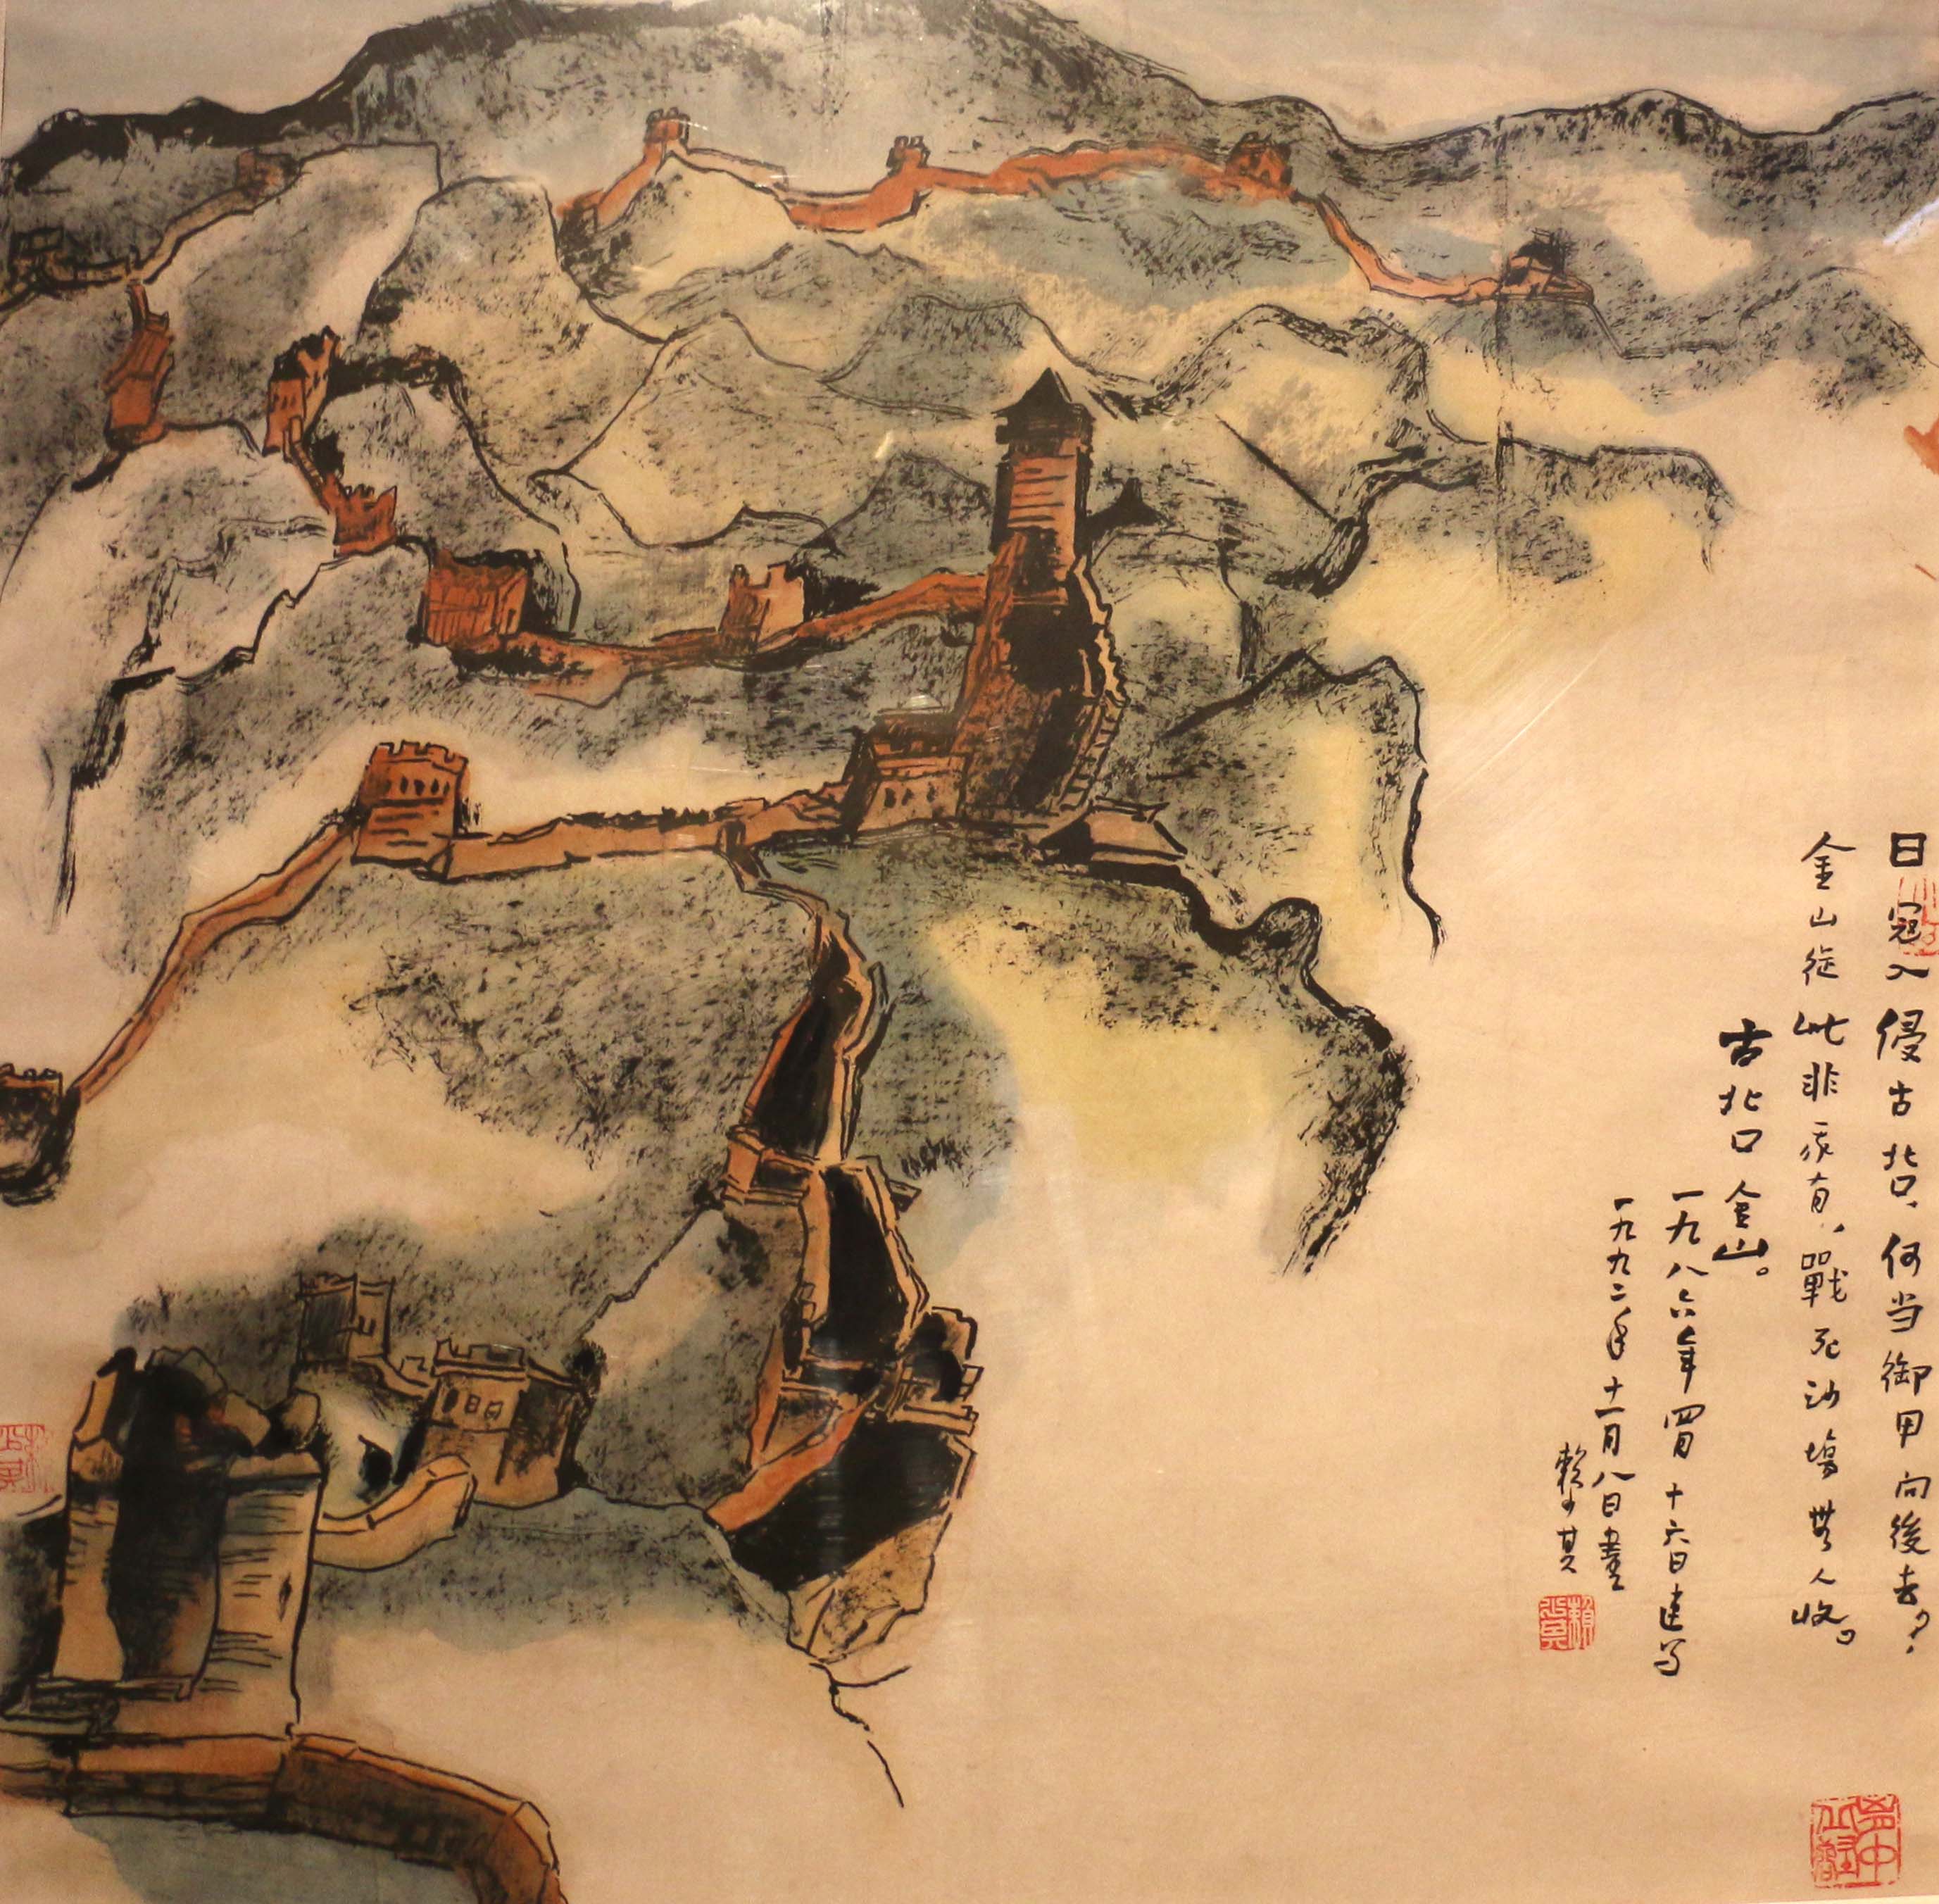 日寇入侵古北口，何当御甲向後去？
金山從此非我有，戰死沙場無人收。
古北口金山。
一九八六年四月十六日速写
一九九二年十一月八日畫
賴少其